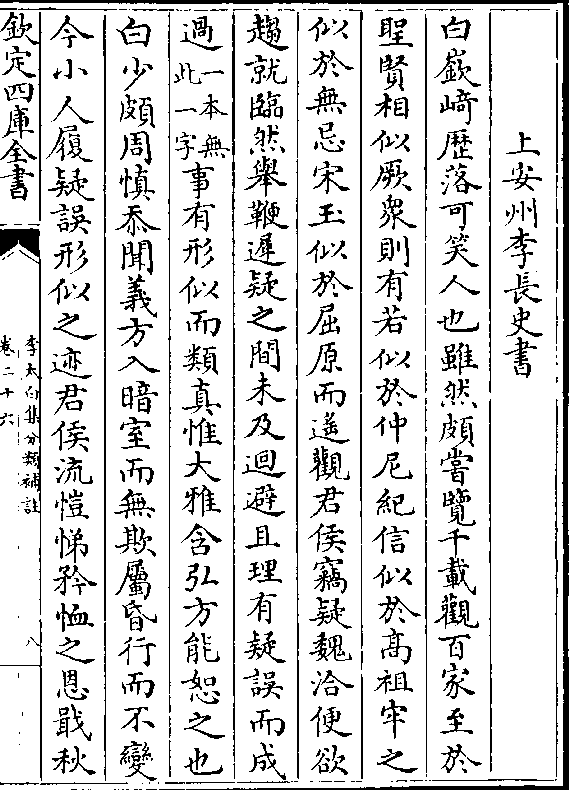 上安州李長史書
白嶔崎歴落可笑人也雖然頗嘗覽千載觀百家至於
聖賢相似厥衆則有若似於仲尼紀信似於髙祖牢之
似於無忌宋玉似於屈原而遥觀君侯竊疑魏洽便欲
趨就臨然舉鞭遲疑之間未及迴避且理有疑誤而成
過一本無此一字事有形似而類真惟大雅含弘方能恕之也
白少頗周慎忝聞義方入暗室而無欺屬昏行而不變
今小人履疑誤形似之迹君侯流愷悌矜恤之恩戢秋
欽定四庫全書
李太白集分類補註
卷二十六
八